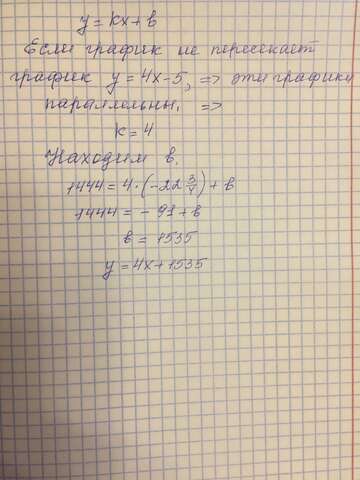 y=kx+b
Если график не пересекает
график y=4x-5, => эти графики
параллельны. =>
k=4
Находим b.
1444=4·(-22 3/4)+b
1444=-91+b
b=1535
y=4x+1535